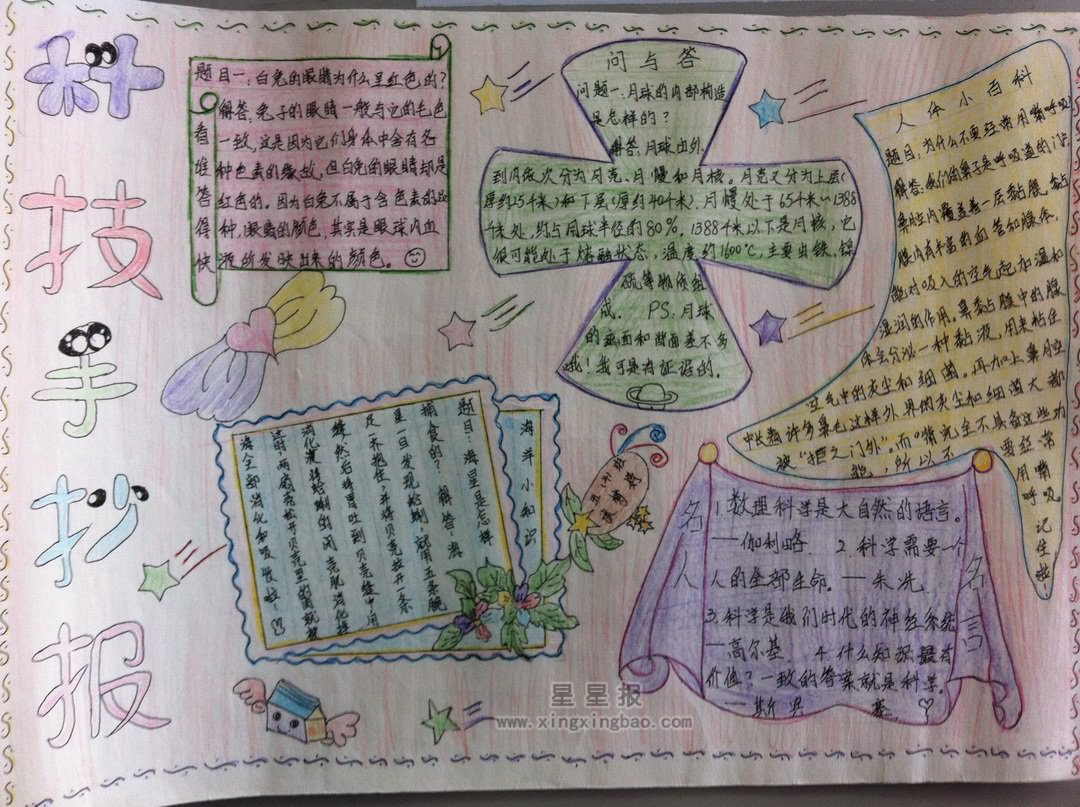 科技手抄报
看谁答得快
题目一:白兔的眼睛为什么呈红色的?
解答:兔子的眼睛一般与它的毛色
一致,这是因为它们身体中含有各
种色素的缘故。但白兔的眼睛却是
红色的。因为白兔不属于含色素的品
种,眼睛的颜色,其实是眼球内血
液所反映出来的颜色。
问与答
问题一:月球的内部构造
是怎样的?
解答:月球由外
到内依次分为月克、月慢和月核。月克又分为上层(
厚约25千米)和下层(厚约40千米),月慢处于65千米~1388
千米处,约占月球半径的80%,1388千米以下是月核,它
很可能处于熔融状态,温度约1600℃,主要由铁、镍
硫等物质组
成。 PS:月球
的正面和背面差不多
哦!我可是有证据的。
人体小百科
题目:为什么不要经常用嘴呼吸
解答:我们的鼻子是呼吸道的门户
鼻腔内覆盖着一层黏膜,黏
膜内有丰富的血管和腺体,
能对吸入的空气起加温和
湿润的作用。鼻黏膜中的腺
体会分泌一种黏液,用来粘住
空气中的灰尘和细菌。再加上鼻腔
中长着许多鼻毛这样外界的灰尘和细菌大都
被“拒之门外”。而口腔完全不具备这些功
能,所以不
要经常
用嘴
呼吸
记住啦
海洋小知识
题目:海星是怎样
捕食的? 解答:海
星一旦发现蛤蜊,就用五条腕
足一齐抱住,并将贝壳拉开一条
缝,然后将胃吐到贝壳缝中,用
消化液将蛤蜊的闭壳肌消化掉
这时两扇壳敞开贝壳里的肉就被
海全部消化和吸收啦!
五(4)班
名人名言
1.数理科学是大自然的语言。
——伽利略. 2.科学需要一个
人的全部生命。—朱冼
3.科学是我们时代的神经系统
—高尔基. 4.什么知识最有
价值?一致的答案就是科学。
—斯宾塞
星星报
www.xingxingbao.com